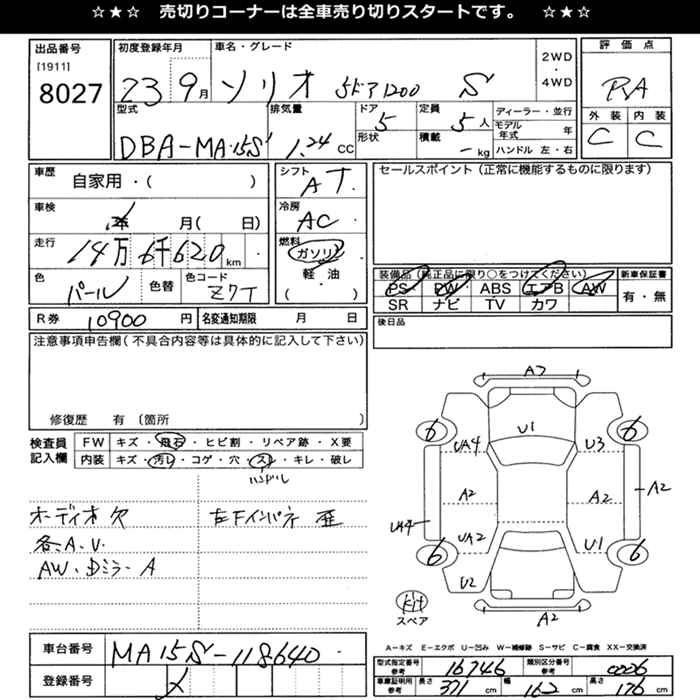 ☆★☆ 売切りコーナーは全車売り切りスタートです。 ☆★☆
出品番号
[1911]
8027
初度登録年月
23 9月
車名・グレード
ソリオ 5ドア1200 S
2WD
・
4WD
評価点
RA
外装 内装
C C
型式
DBA-MA15S
排気量
1.24 CC
ドア
5
形状
定員
5人
積載
- kg
ディーラー・並行
モデル年式 年
ハンドル 左・右
車歴
自家用・( )
車検
年 月( 日)
走行
14万6千620 km
色
パール
色替
色コード
Z7T
シフト
AT
冷房
AC
燃料
ガソリン
軽・油
( )
セールスポイント(正常に機能するものに限ります)
装備品(純正品に限り○をつけてください)
PS PW ABS エアB AW
SR ナビ TV カワ
新車保証書
有・無
R券 10900 円
名変通知期限 月 日
後日品
注意事項申告欄(不具合内容等は具体的に記入して下さい)
修復歴 有〔箇所
検査員
記入欄
FW キズ・飛石・ヒビ割・リペア跡・X要
内装 キズ・汚レ・コゲ・穴・スレ・キレ・破レ
ハンドル
オーディオ欠
各A.V.
AW・Dミラー A
左下インパネ 歪
A3
6 U1 6
UA4 U3
A2 A2 A2
UA4
UA2 U1
6 6
U2
kit
スペア
A2
A-キズ E-エクボ U-凹み W-補修跡 S-サビ C-腐食 XX-交換済
車台番号
MA15S-118640
登録番号
メ
型式指定番号
参考
16746
類別区分番号
参考
0006
車庫証明用
参考
長さ 371 cm
幅 162 cm
高さ 176 cm